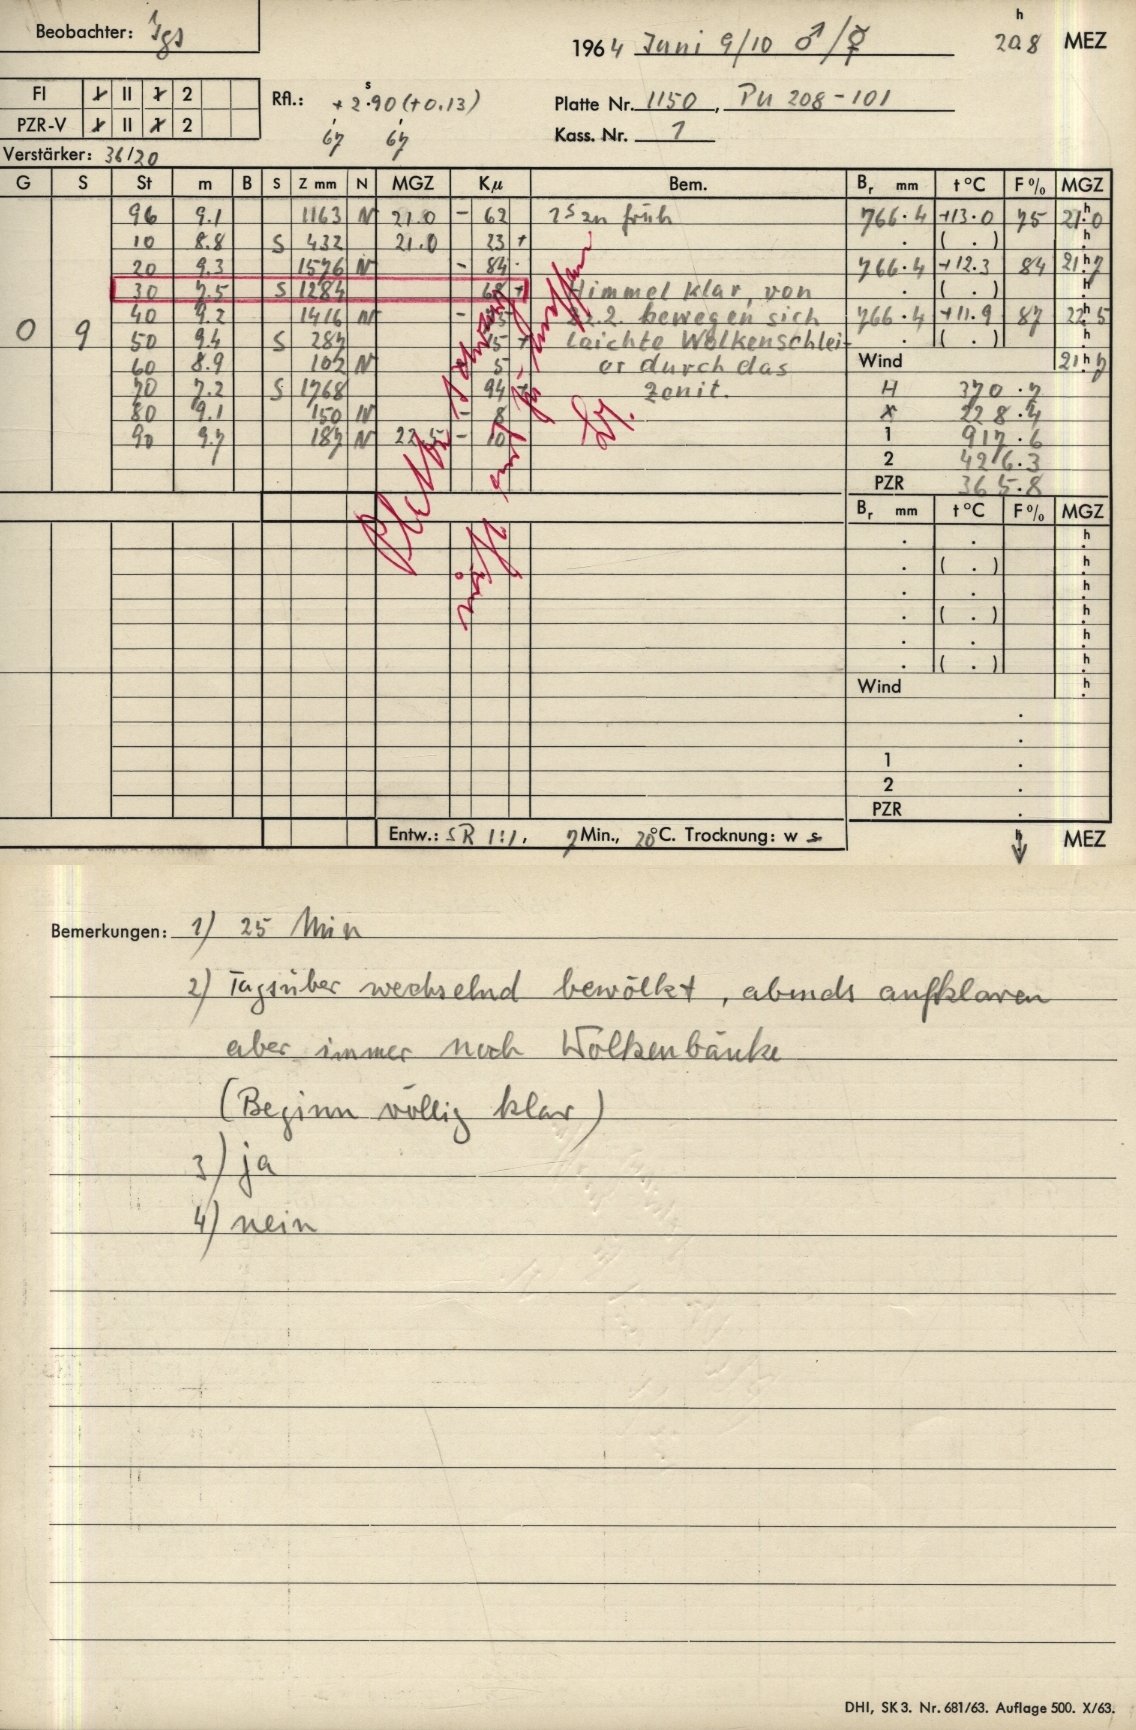 Beobachter: Jgs
1964 Juni 9/10 ♂/☿ 20.8 h MEZ
FI I II 1 2
PZR-V I II 1 2
Rfl.: +2.90 s (+0.13)
67 67
Platte Nr. 1150, PU 208-101
Kass. Nr. 1
Verstärker: 36/20
G S St m B S Z mm N MGZ Kμ Bem. Br mm t °C F % MGZ
96 9.1 1163 N 21.0 - 62 2s zu früh 766.4 +13.0 75 21.0 h
10 8.8 S 432 21.0 23 + . ( . ) h
20 9.3 1576 N - 84 766.4 +12.3 84 21.7 h
30 7.5 S 1284 + Himmel klar, von . ( . ) h
40 9.2 1416 N - bewegen sich 766.4 +11.9 87 22.5 h
0 9
50 9.4 S 287 15 + leichte Wolkenschlei- . ( . ) h
60 8.9 102 N - 5 er durch das Wind 21.7 h
70 7.2 S 1768 94 + Zenit. H 370.7
80 9.1 150 N - 8 228.4
90 9.7 187 N 22.5 - 10 1 917.6
2 426.3
PZR 365.8
Platte
nicht
Br mm t °C F % MGZ
. . h
. ( . ) h
. . h
. ( . ) h
. . h
. ( . ) h
Wind h
.
.
1 .
2 .
PZR .
Entw.: SR 1:1, 7 Min., 20 °C. Trocknung: w s h MEZ
Bemerkungen: 1) 25 Min
2) Tagsüber wechselnd bewölkt, abends aufklaren
aber immer noch Wolkenbänke
(Beginn völlig klar)
3) ja
4) nein
DHI, SK 3. Nr. 681/63. Auflage 500. X/63.